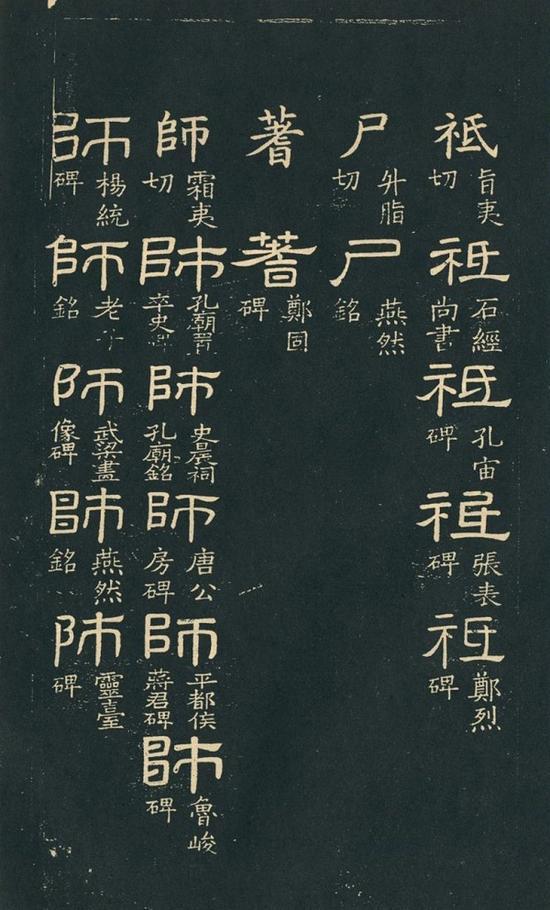 祗旨夷切祗石經尚書祗孔宙碑祗張表碑祗鄭烈碑
尸升脂切尸燕然銘
蓍蓍鄭固碑
師霜夷切師孔廟置卒史碑師史晨祠孔廟銘師唐公房碑師平都侯蔣君碑師魯峻碑
師楊統碑師老銘師武梁畫像碑師燕然銘師靈臺碑